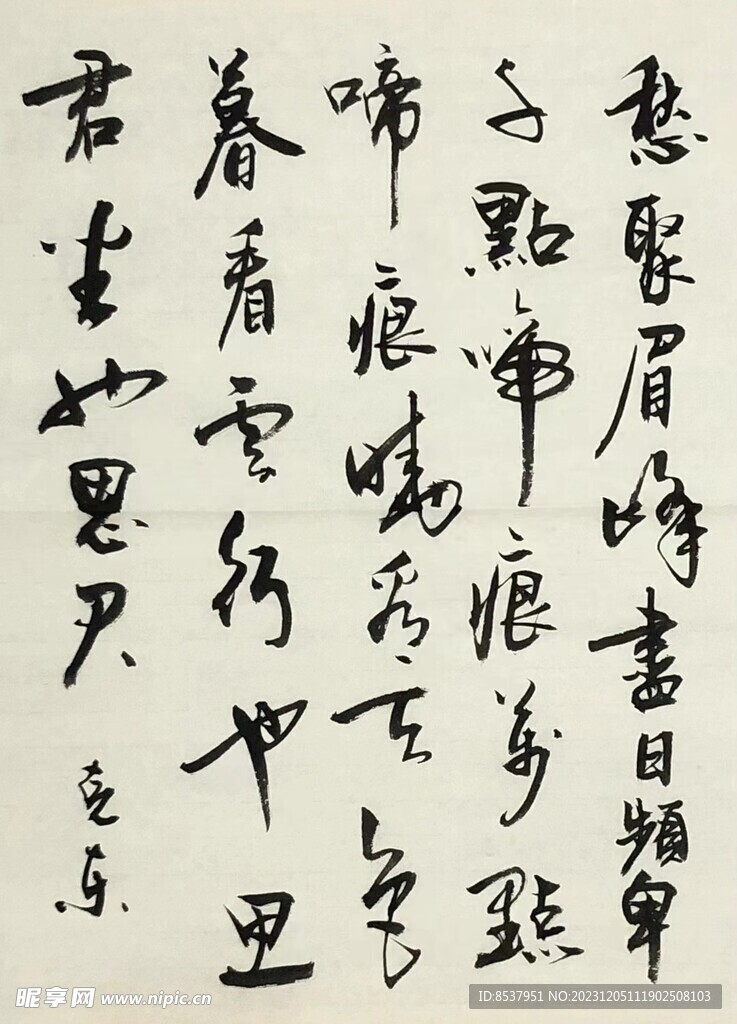 愁聚眉峰盡日顰
千點啼痕萬點
啼痕曉看天色
暮看雲行也思
君坐也思君
克东
昵享网 www.nipic.cn
ID:8537951 NO:20231205111902508103